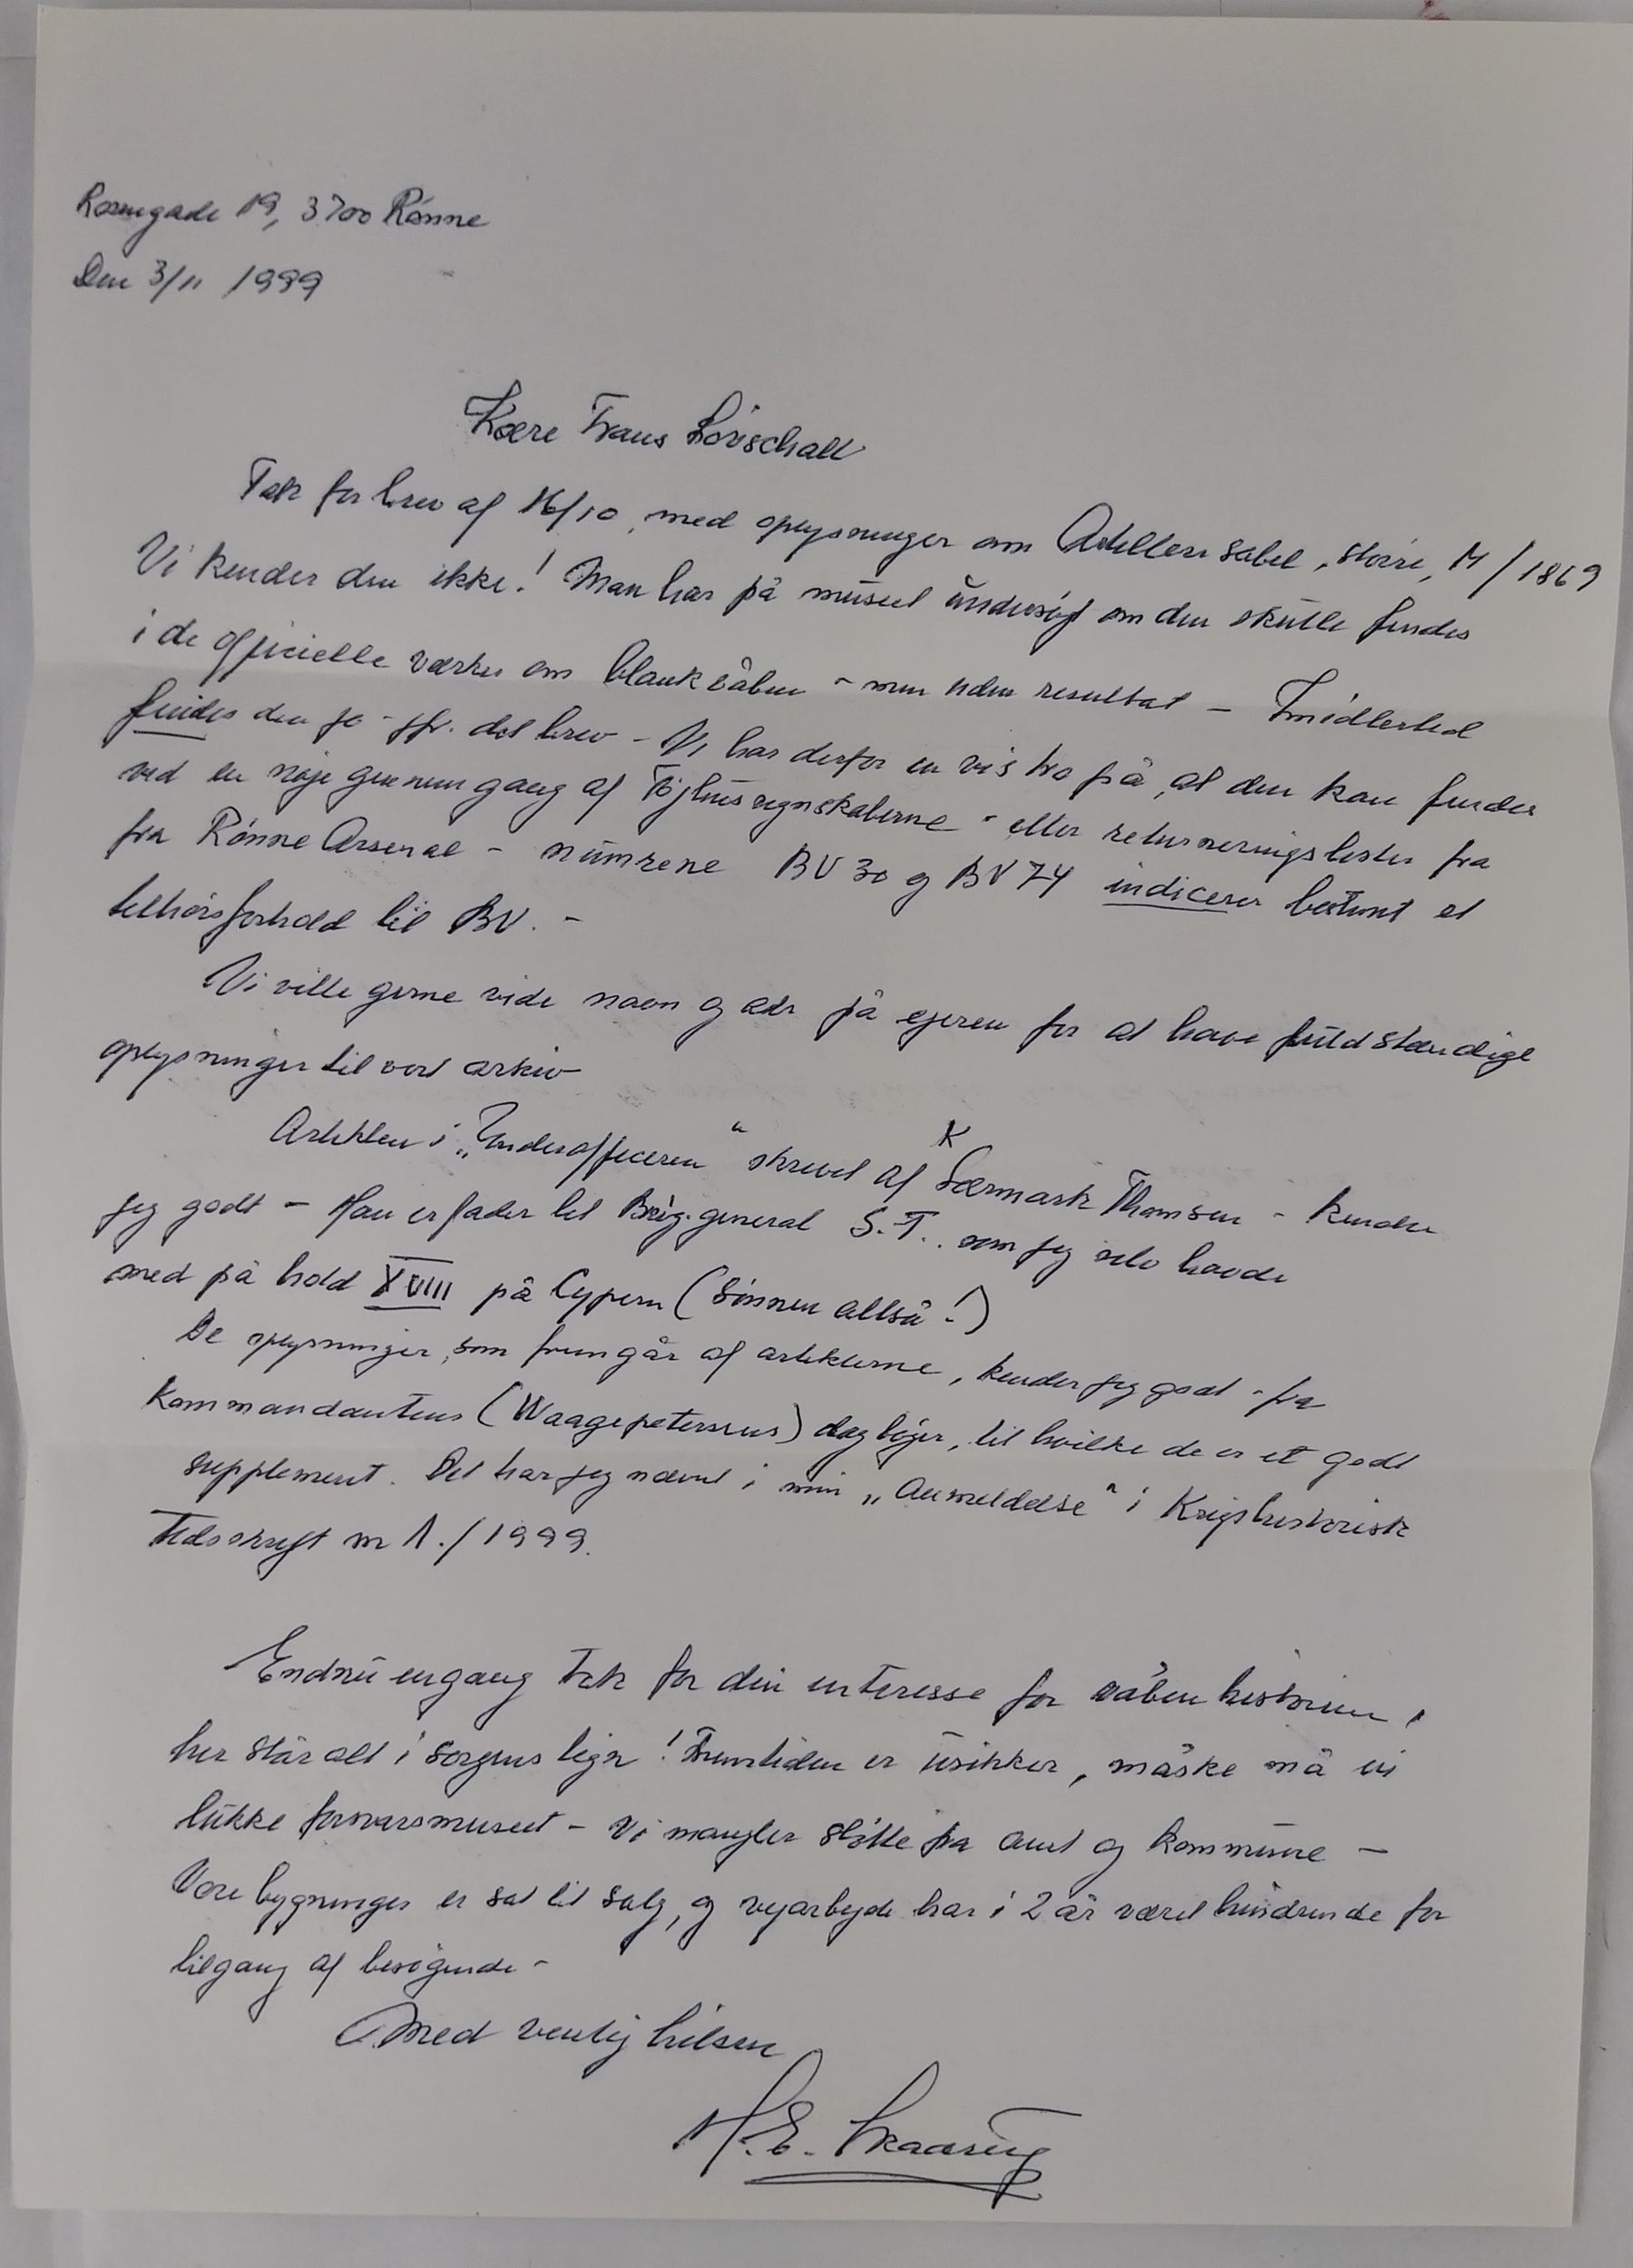 Rosengade 19, 3700 Rønne
Den 3/11 1999
Kære Frans Løvschall
Tak for brev af 16/10, med oplysninger om Artilleri sabel, større, M/1869
Vi kender den ikke! Man har på museet undersøgt om den skulle findes
i de officielle værker om blankvåben - men uden resultat - Imidlertid
findes den jo - jfr. dit brev - Vi har derfor en vis tro på, at den kan findes
ved en nøje gennemgang af Tøjhusregnskaberne - eller returneringslister fra
fra Rønne Arsenal - numrene BV 30 og BV 74 indicerer bestemt et
tilhørsforhold til BV. -
Vi ville gerne vide navn og adr på ejeren for at have fuldstændige
oplysninger til vort arkiv
Artiklen i „Underofficeren" skrevet af K Særmark Thomsen - kender
jeg godt - Han er fader til Brig.general S.T. som jeg selv havde
med på hold XVIII på Cypern (Sønnen altså!)
De oplysninger, som fremgår af artiklerne, kender jeg godt - fra
Kommandantens (Waagepetersens) dagbøger, til hvilke de er et godt
supplement. Det har jeg nævnt i min „Anmeldelse" i Krigshistorisk
Tidsskrift nr 1./1999.
Endnu engang Tak for din interesse for våbenhistorien,
her står alt i sorgens tegn! Fremtiden er usikker, måske må vi
lukke forsvarsmuseet - Vi mangler støtte fra amt og kommune -
Vore bygninger er sat til salg, og vejarbejde har i 2 år været hindrende for
tilgang af besøgende -
Med venlig hilsen
H.E.